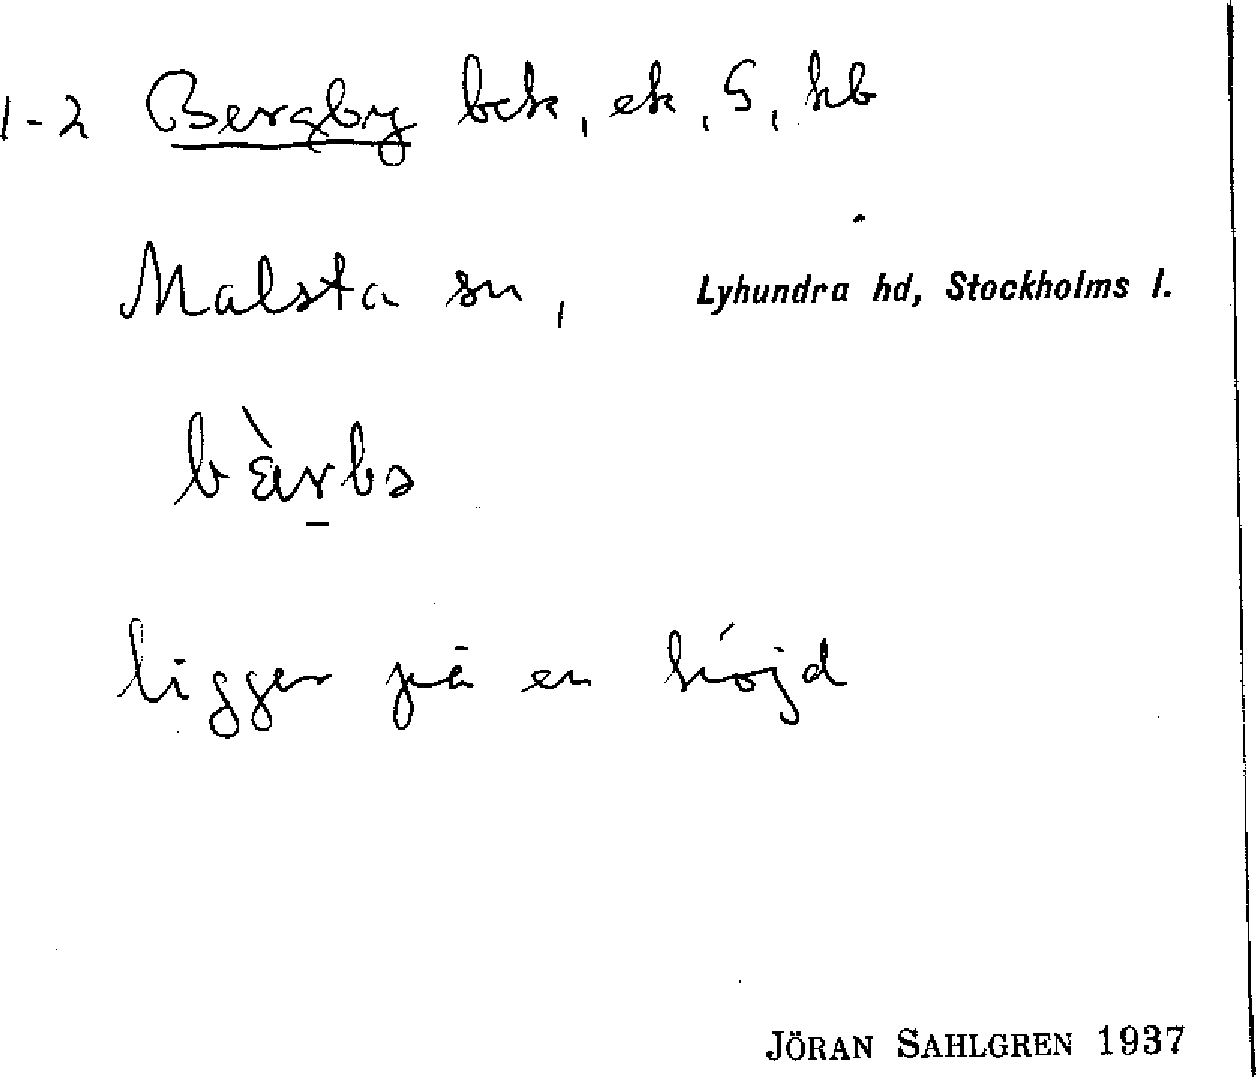 1-2 Bergby bek, ek, S, hb
Malsta sn, Lyhundra hd, Stockholms l.
bὰrbə
ligger på en höjd
JÖRAN SAHLGREN 1937